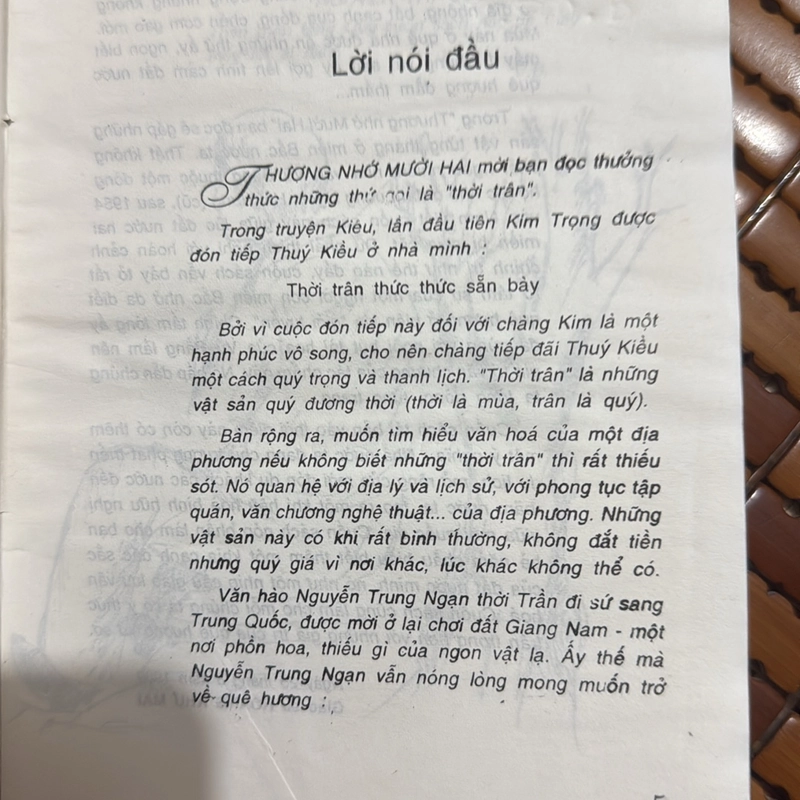 Lời nói đầu
THƯƠNG NHỚ MƯỜI HAI mời bạn đọc thưởng
thức những thứ gọi là "thời trân".
Trong truyện Kiều, lần đầu tiên Kim Trọng được
đón tiếp Thuý Kiều ở nhà mình :
Thời trân thức thức sẵn bày
Bởi vì cuộc đón tiếp này đối với chàng Kim là một
hạnh phúc vô song, cho nên chàng tiếp đãi Thuý Kiều
một cách quý trọng và thanh lịch. "Thời trân" là những
vật sản quý đương thời (thời là mùa, trân là quý).
Bàn rộng ra, muốn tìm hiểu văn hoá của một địa
phương nếu không biết những "thời trân" thì rất thiếu
sót. Nó quan hệ với địa lý và lịch sử, với phong tục tập
quán, văn chương nghệ thuật... của địa phương. Những
vật sản này có khi rất bình thường, không đắt tiền
nhưng quý giá vì nơi khác, lúc khác không thể có.
Văn hào Nguyễn Trung Ngạn thời Trần đi sứ sang
Trung Quốc, được mời ở lại chơi đất Giang Nam - một
nơi phồn hoa, thiếu gì của ngon vật lạ. Ấy thế mà
Nguyễn Trung Ngạn vẫn nóng lòng mong muốn trở
về quê hương :